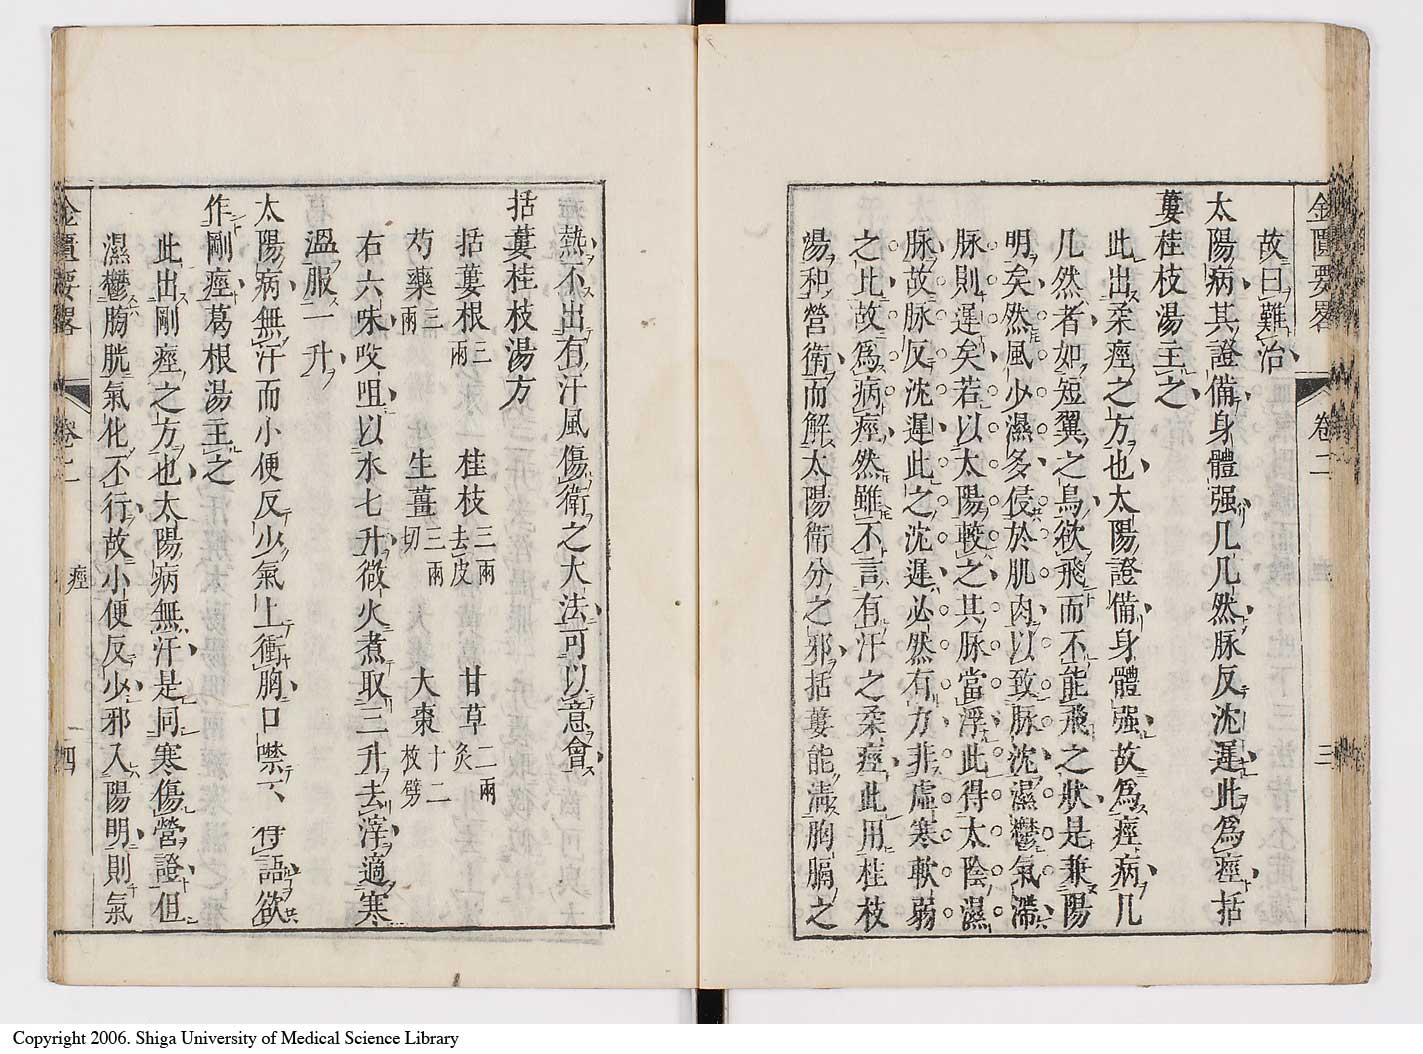 金匱要畧 卷二 三
故曰難治
太陽病其證備身體强几几然脉反沈遲此爲痙括
蔞桂枝湯主之
此出柔痙之方也太陽證備身體强故爲痙病几
几然者如短翼之鳥欲飛而不能飛之狀是兼陽
明矣然風少濕多侵於肌肉以致脉沈濕鬱氣滯
脉則遲矣若以太陽較之其脉當浮此得太陰濕
脉故脉反沈遲此之沈遲必然有力非虛寒軟弱
之比故爲病痙然雖不言有汗之柔痙此用桂枝
湯和營衛而解太陽衛分之邪括蔞能淸胸膈之
熱不出有汗風傷衛之大法可以意會
括蔞桂枝湯方
括蔞根三兩 桂枝三兩去皮 甘草二兩灸
芍藥三兩 生薑三兩切 大棗十二枚劈
右六味㕮咀以水七升微火煮取三升去滓適寒
溫服一升
太陽病無汗而小便反少氣上衝胸口噤不得語欲
作剛痙葛根湯主之
此出剛痙之方也太陽病無汗是同寒傷營證但
濕鬱膀胱氣化不行故小便反少邪入陽明則氣
金匱要畧 卷二 痙 四
Copyright 2006. Shiga University of Medical Science Library